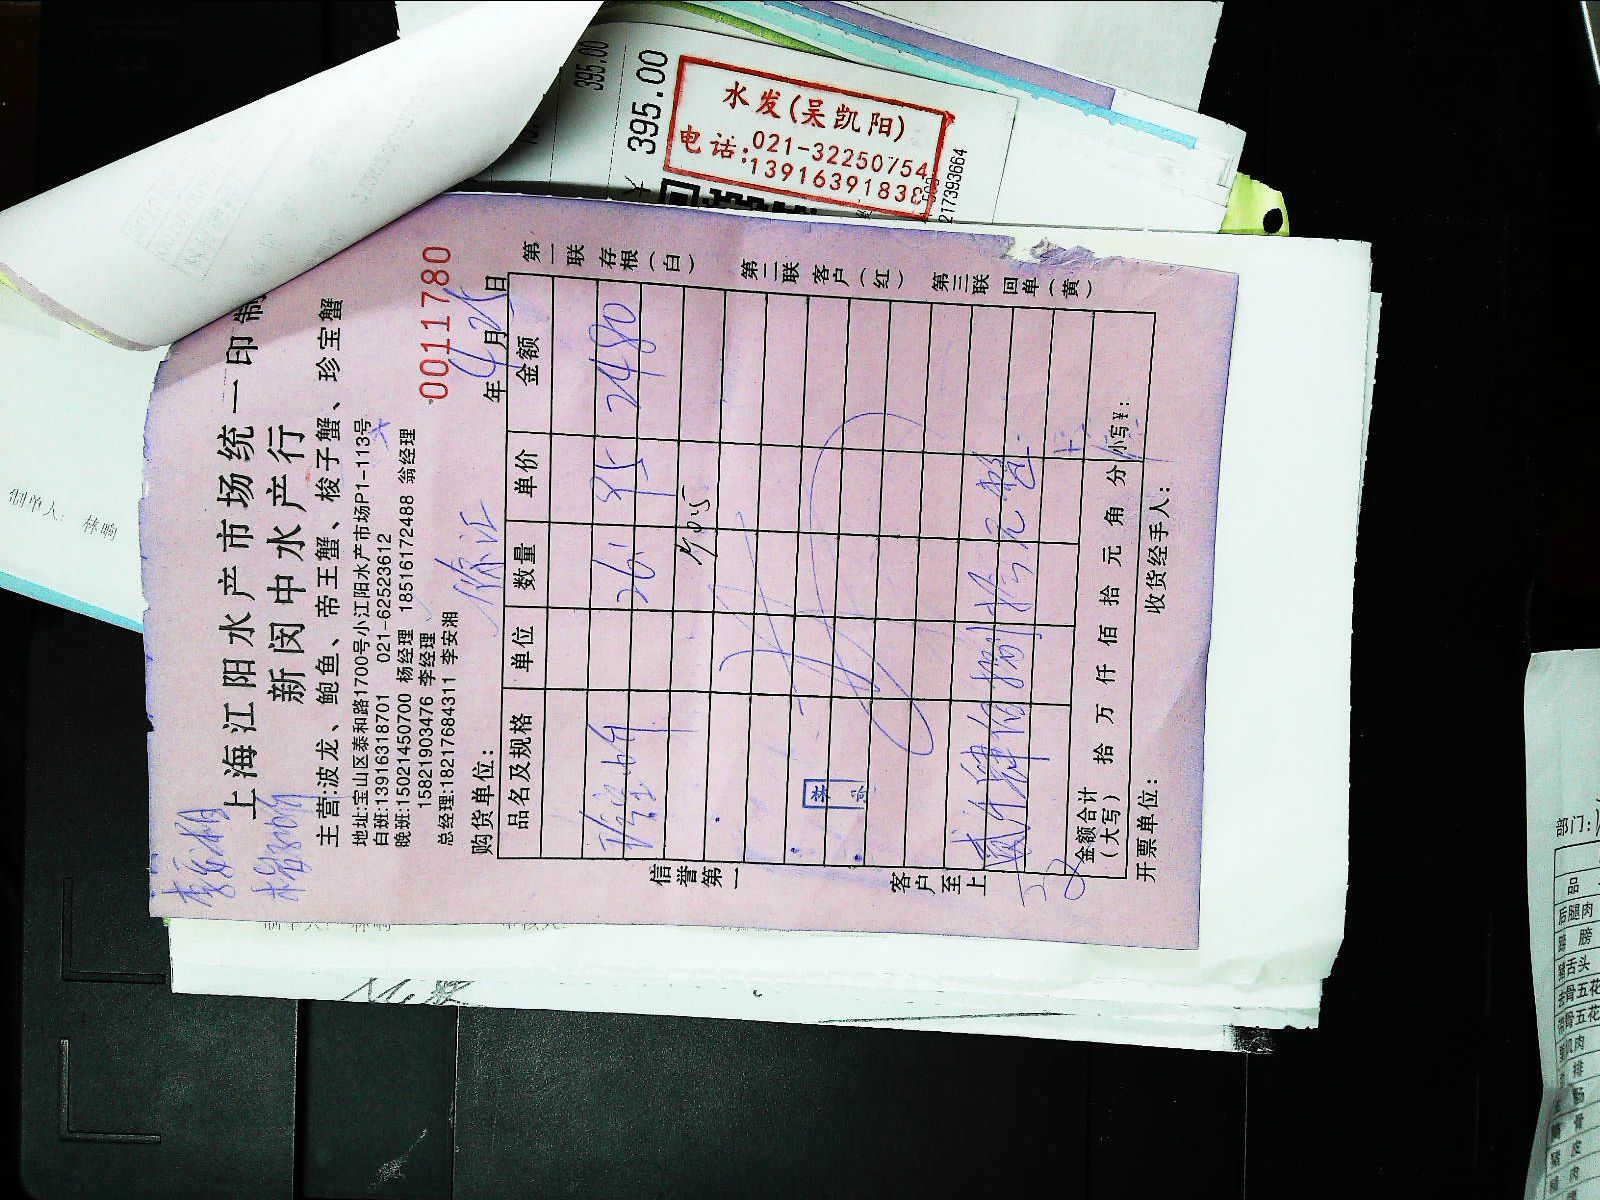 上海江阳水产市场统一印制
新闵中水产行
主营:波龙、鲍鱼、帝王蟹、梭子蟹、珍宝蟹
地址:宝山区泰和路1700号小江阳水产市场P1-113号
白班:13916318701 021-62523612
晚班:15021450700 杨经理 18516172488 翁经理
15821903476 李经理
总经理:18217684311 李安湘
0011780
购货单位: 徐汇
年 4月25日
品名及规格 单位 数量 单价 金额
珍宝蟹 26.1 95 2480
金额合计
(大写)
拾 万 仟 佰 拾 元 角 分 小写¥:
贰仟肆佰捌拾元整
开票单位: 收货经手人:
信誉第一
客户至上
第一联 存根(白)
第二联 客户(红)
第三联 回单(黄)
395.00
395.00
水发(吴凯阳)
电话:021-32250754
13916391838
217393664
制单人: 林晌
部门:
品
后腿肉
蹄 膀
猪舌头
去骨五花
带骨五花